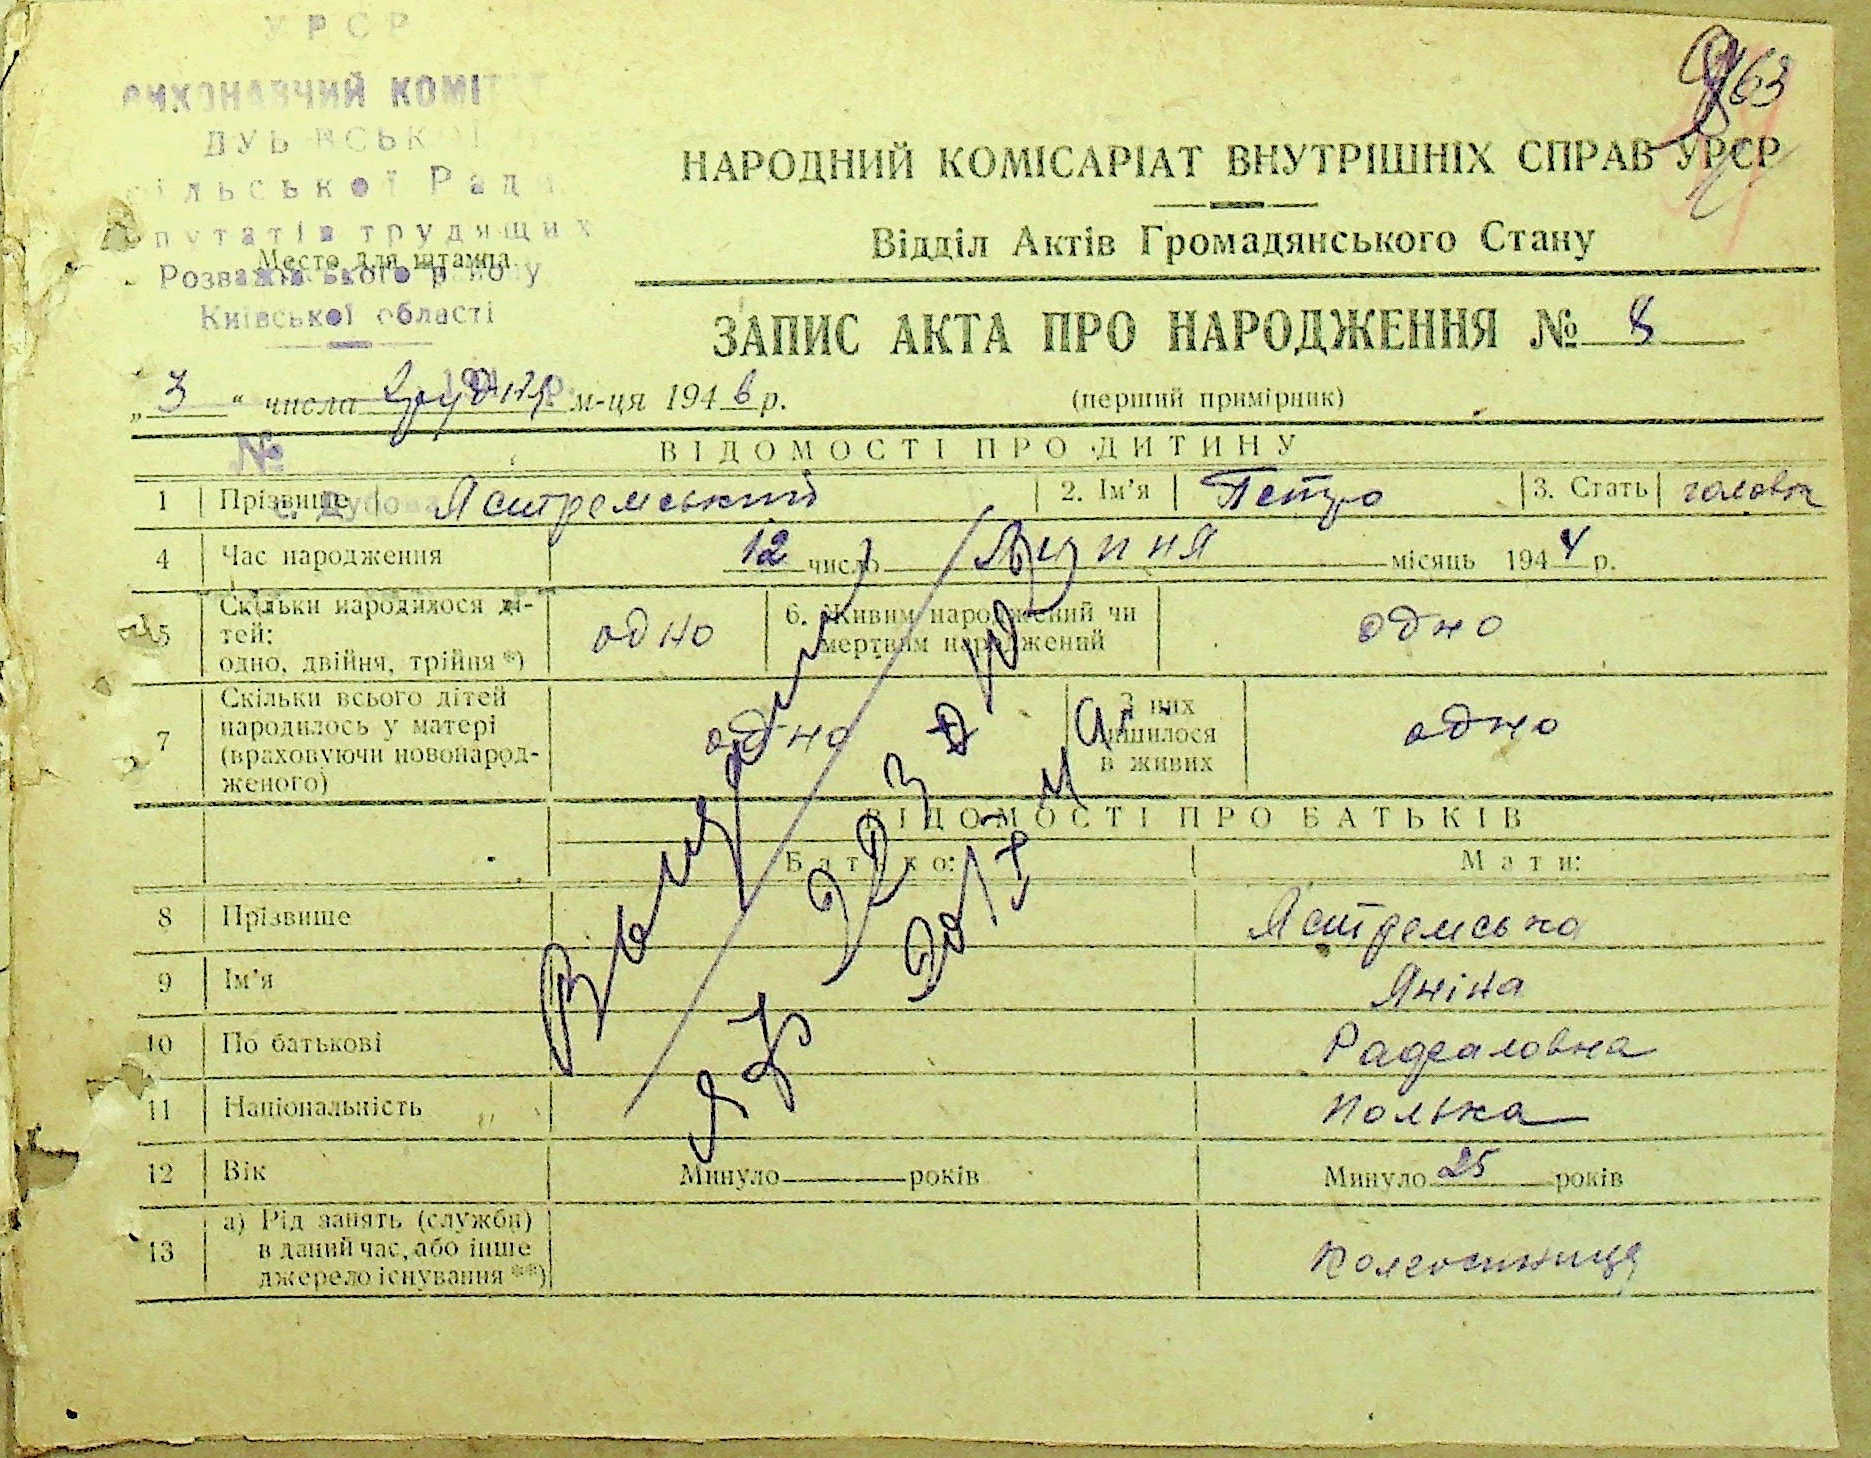 УРСР
ВИКОНАВЧИЙ КОМІТЕТ
сільської Ради
депутатів трудящих
Место для штампа
Розважівського району
Київської області
№
с. Дубова
63
НАРОДНИЙ КОМІСАРІАТ ВНУТРІШНІХ СПРАВ УРСР
Відділ Актів Громадянського Стану
ЗАПИС АКТА ПРО НАРОДЖЕННЯ № 8
„3“ числа грудня м-ця 1946 р.
(перший примірник)
ВІДОМОСТІ ПРО ДИТИНУ
1 Прізвище Ястремський 2. Ім'я Петро 3. Стать
4 Час народження 12 число Липня місяць 1944 р.
5 Скільки народилося дітей: одно, двійня, трійня *) одно 6. Живим народжений чи мертвим народжений одно
7 Скільки всього дітей народилось у матері (враховуючи новонародженого) одно З них лишилося в живих одно
ВІДОМОСТІ ПРО БАТЬКІВ
Батько: Мати:
8 Прізвище Ястремська
9 Ім'я Яніна
10 По батькові
11 Національність полька
12 Вік Минуло років Минуло 25 років
13 а) Рід занять (служби) в даний час, або інше джерело існування **) колгоспниця
як